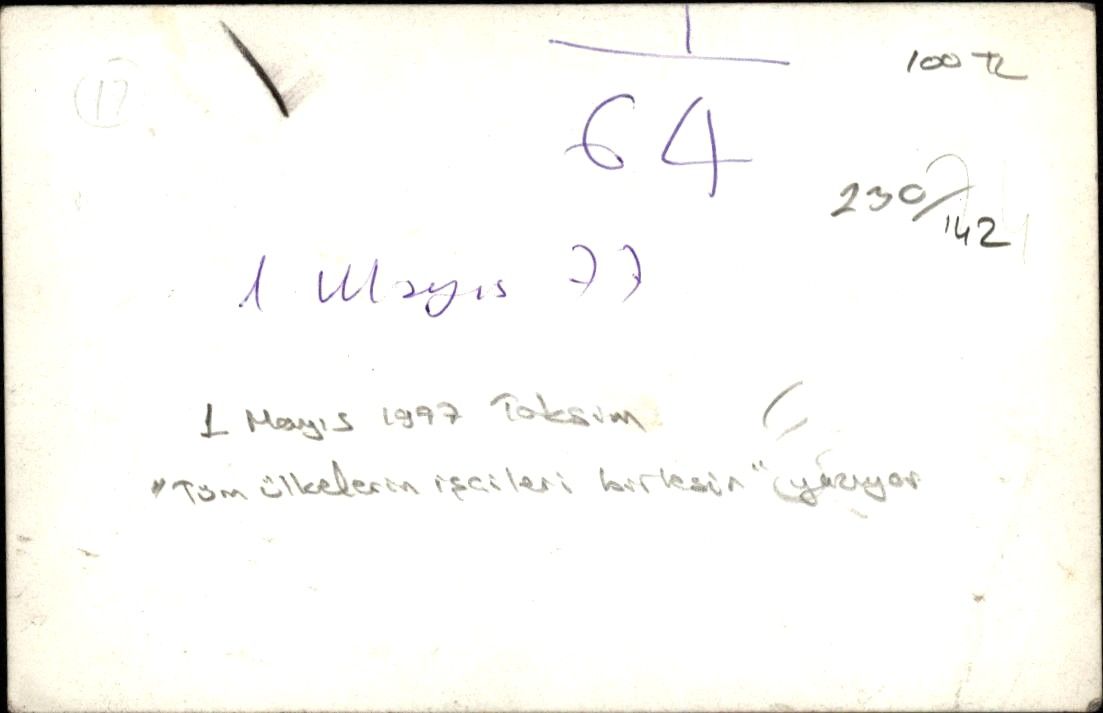 17
100 TL
64
230/142
1 Mayıs 77
1 Mayıs 1997 Taksim
"Tüm ülkelerin işçileri birleşin" yazıyor